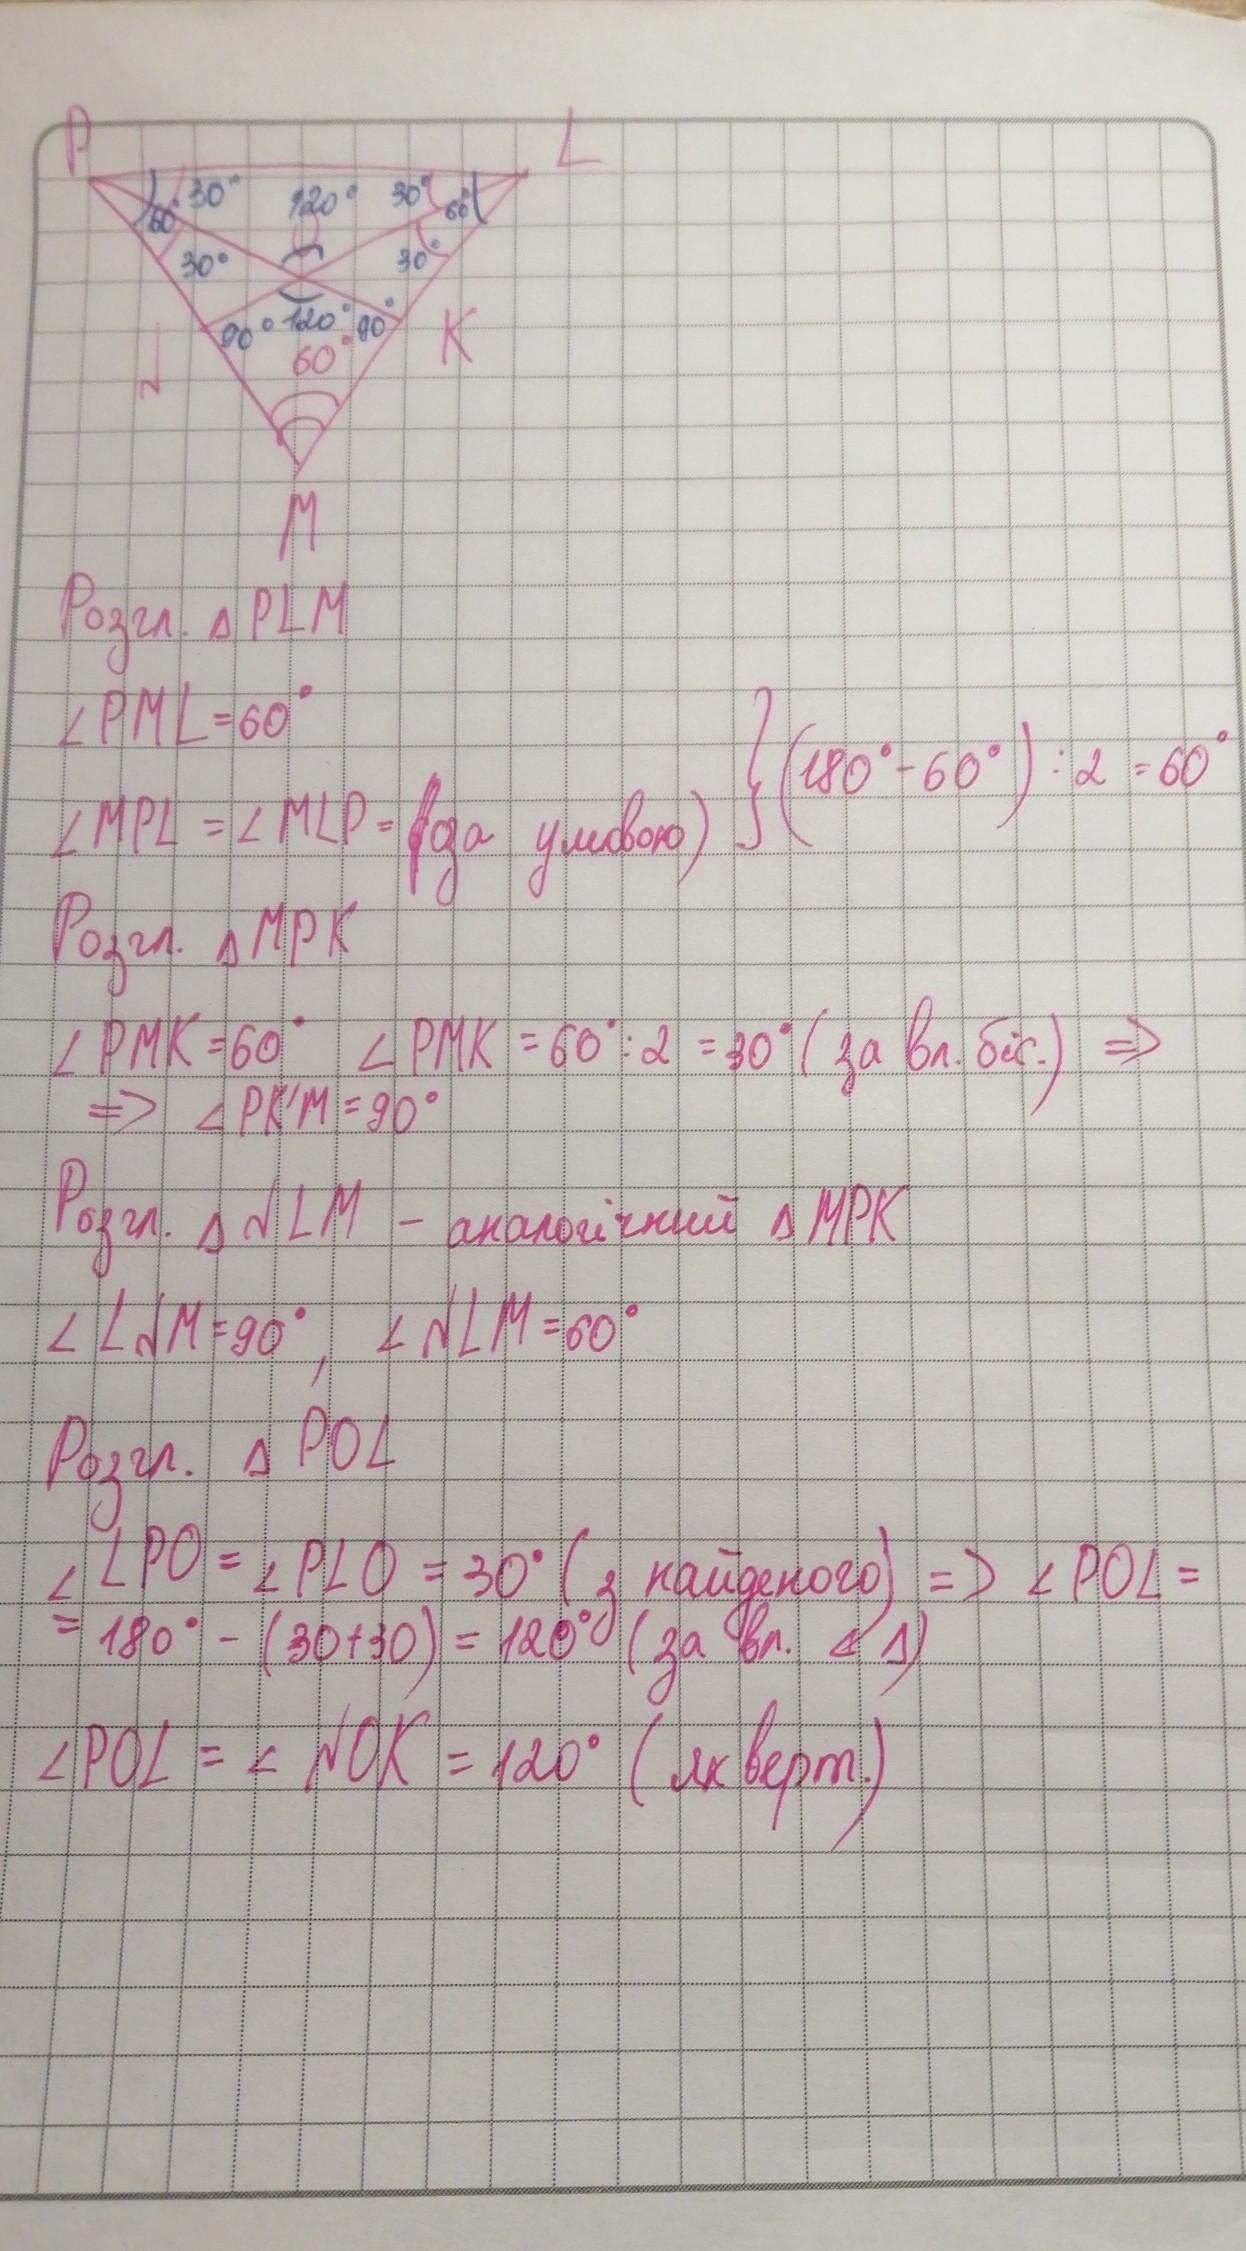 P L
30° 120° 30°
60° 60°
30° O 30°
90° 120° 90°
N 60° K
M
Розгл. △ PLM
∠PML=60°
∠MPL = ∠MLP = (за умовою) } (180°-60°):2=60°
Розгл. △ MPK
∠PMK=60° ∠PMK = 60°:2 = 30° (за вл. біс.) =>
=> ∠PKM=90°
Розгл. △ NLM - аналогічний △ MPK
∠LNM=90°, ∠NLM=60°
Розгл. △ POL
∠LPO = ∠PLO = 30° (з найденого) => ∠POL =
= 180° - (30+30) = 120° (за вл. ∠ △)
∠POL = ∠ NOK = 120° (як верт.)